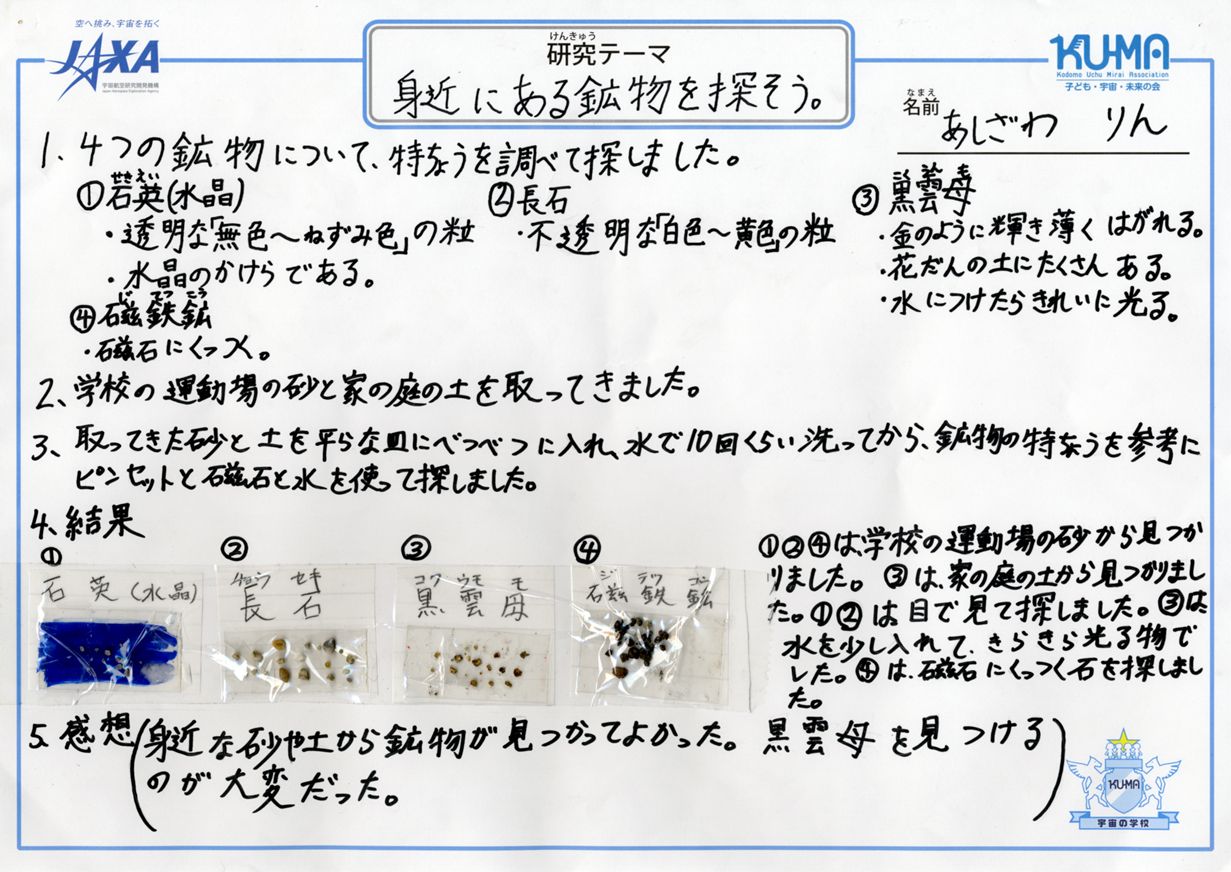 空へ挑み、宇宙を拓く
JAXA
宇宙航空研究開発機構
Japan Aerospace Exploration Agency
けんきゅう
研究テーマ
身近にある鉱物を探そう。
KU-MA
Kodomo Uchu Mirai Association
子ども・宇宙・未来の会
なまえ
名前
あしざわ りん
1、4つの鉱物について、特ちょうを調べて探しました。
①石英(水晶)
せきえい
・透明な「無色〜ねずみ色」の粒
・水晶のかけらである。
②長石
・不透明な「白色〜黄色」の粒
③黒雲母
・金のように輝き薄くはがれる。
・花だんの土にたくさんある。
・水につけたらきれいに光る。
じ てつ こう
④磁鉄鉱
・磁石にくっつく。
2、学校の運動場の砂と家の庭の土を取ってきました。
3、取ってきた砂と土を平らな皿にべつべつに入れ、水で10回くらい洗ってから、鉱物の特ちょうを参考に
ピンセットと磁石と水を使って探しました。
4、結果
①
石英(水晶)
②
チョウ セキ
長石
③
コク ウモ モ
黒雲母
④
ジ テツ コウ
磁鉄鉱
①②④は学校の運動場の砂から見つか
りました。③は、家の庭の土から見つかりまし
た。①②は目で見て探しました。③は、
水を少し入れて、きらきら光る物で
した。④は、磁石にくっつく石を探しまし
た。
5、感想(身近な砂や土から鉱物が見つかってよかった。黒雲母を見つける
のが大変だった。)
KU-MA
宇宙の学校